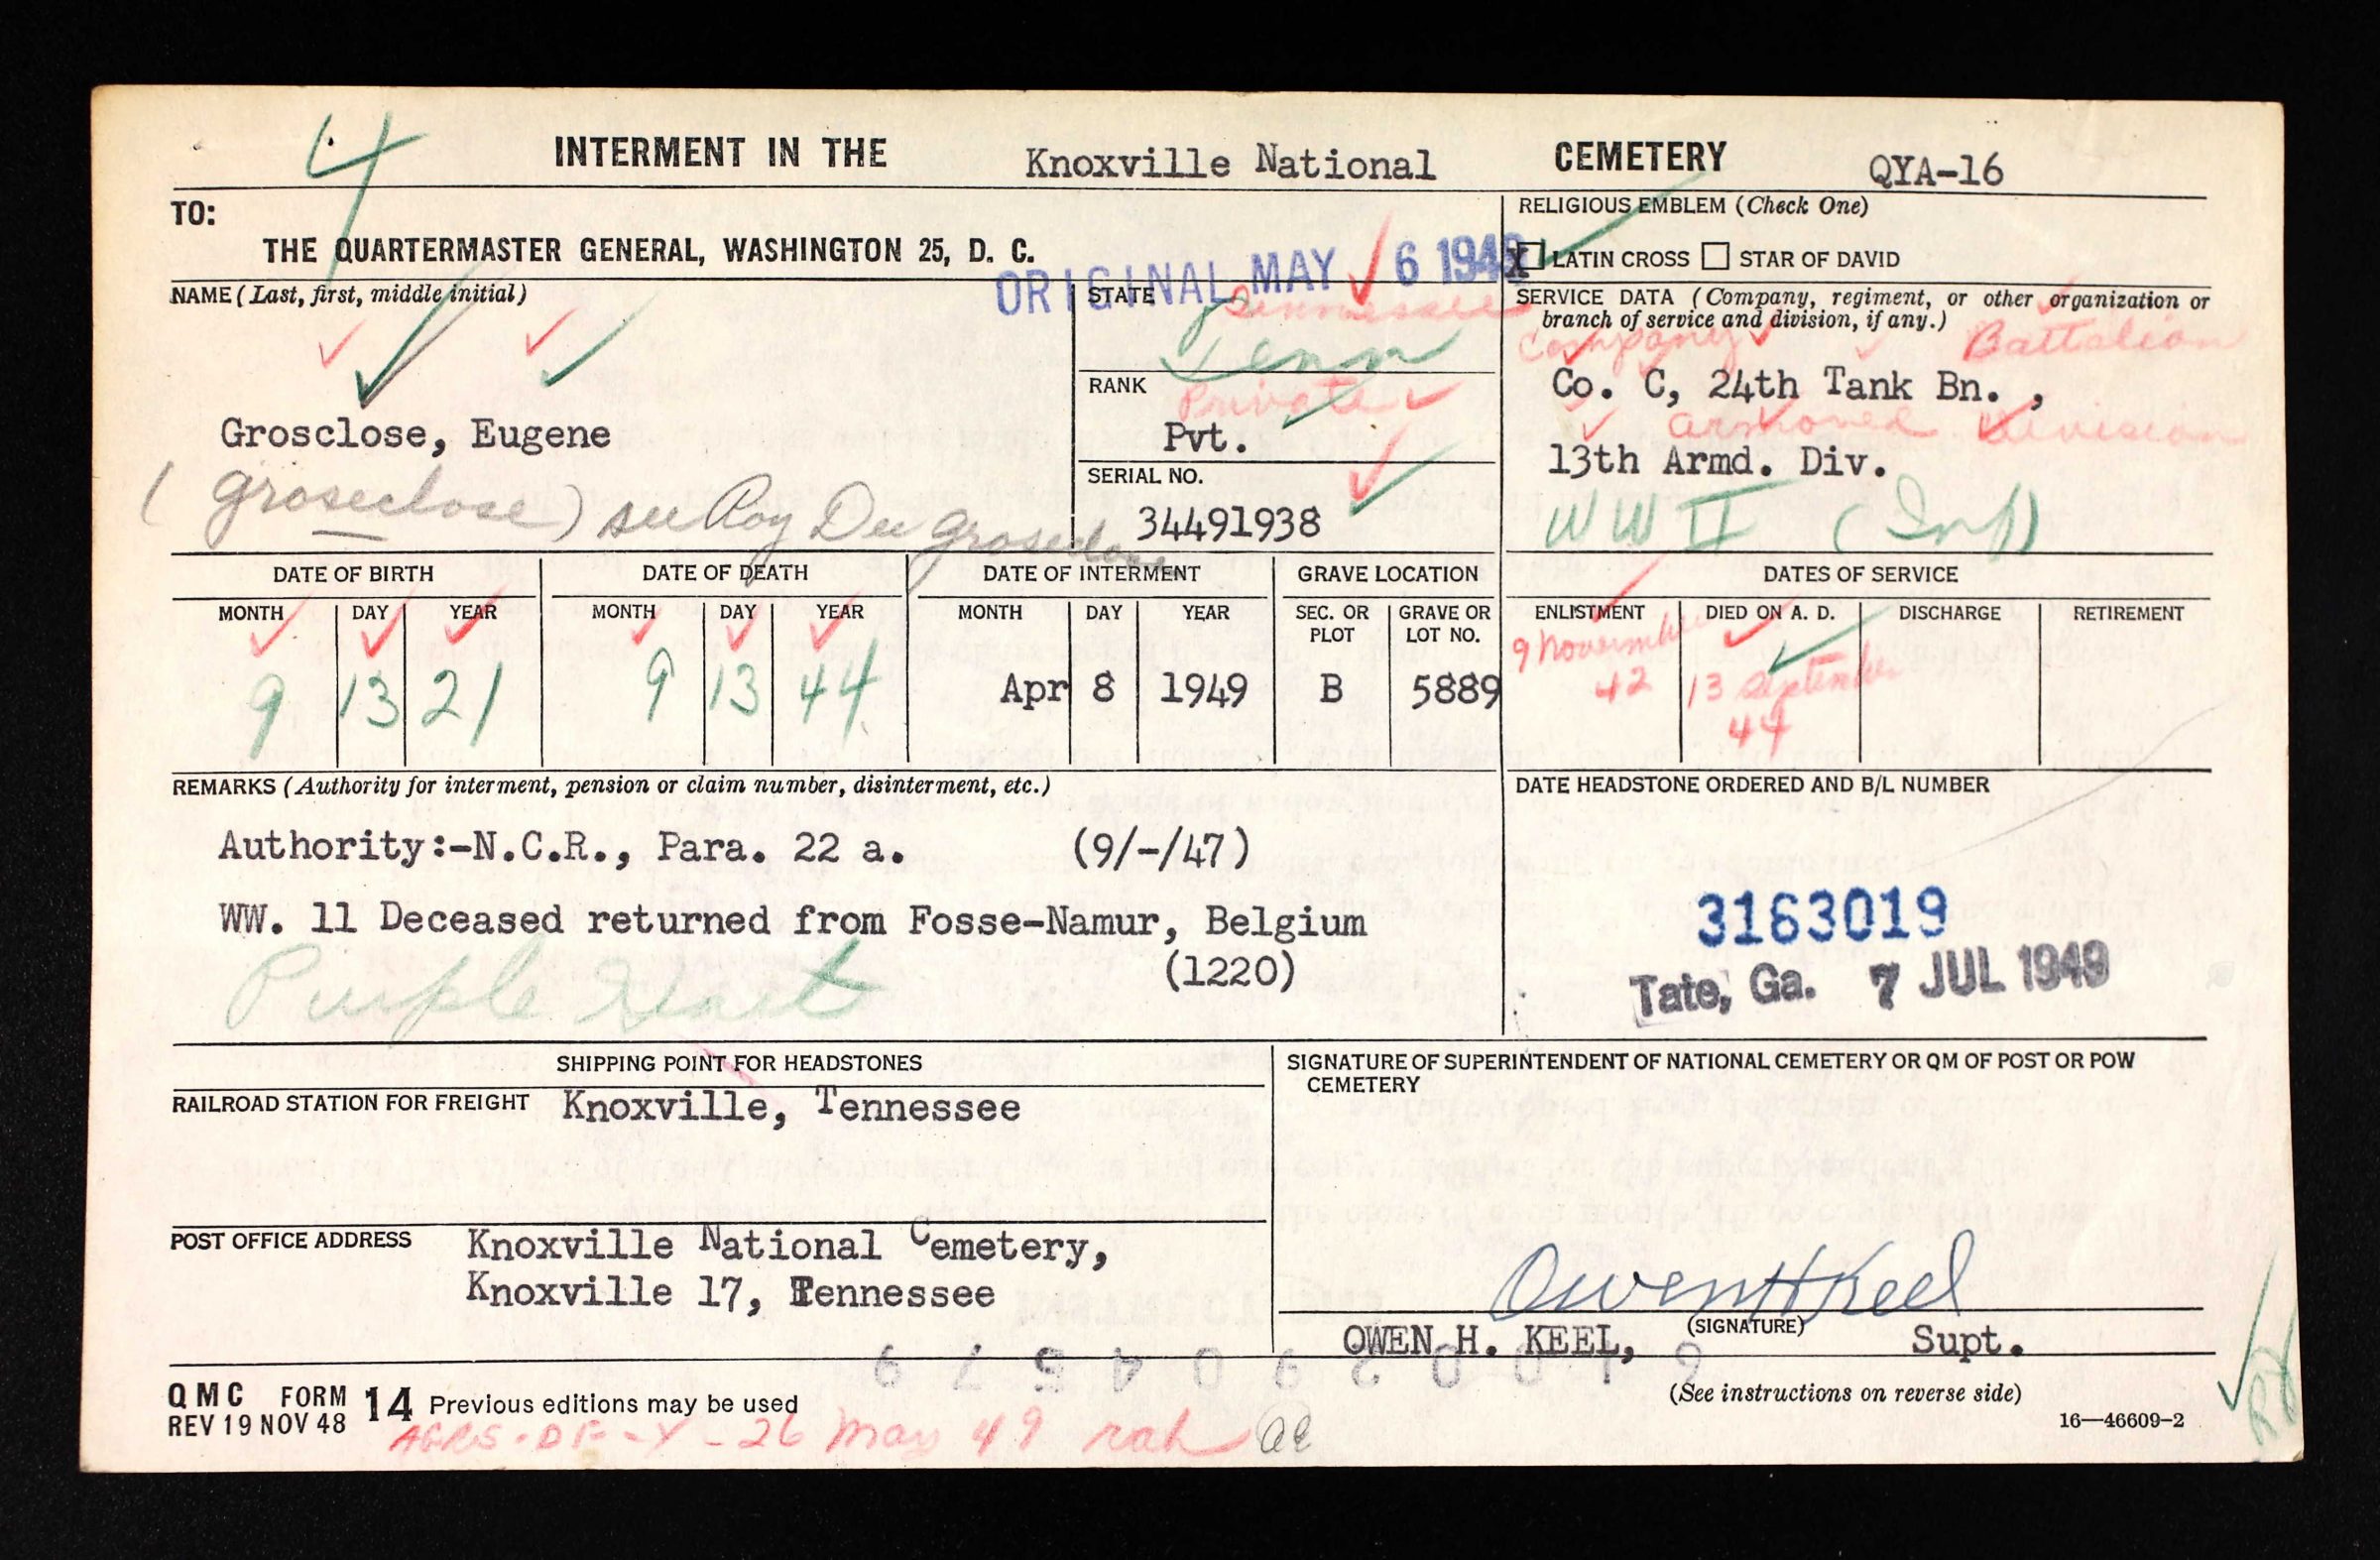 4
INTERMENT IN THE Knoxville National CEMETERY QYA-16
TO:
THE QUARTERMASTER GENERAL, WASHINGTON 25, D. C.
ORIGINAL MAY 6 1949
RELIGIOUS EMBLEM (Check One)
X LATIN CROSS STAR OF DAVID
NAME (Last, first, middle initial)
Grosclose, Eugene
(Groseclose) see Roy Dee Groseclose
STATE
Tennessee
Tenn
RANK
Private
Pvt.
SERIAL NO.
34491938
SERVICE DATA (Company, regiment, or other organization or
branch of service and division, if any.)
Company Battalion
Co. C, 24th Tank Bn. ,
Armored Division
13th Armd. Div.
WW II (Inf)
DATE OF BIRTH DATE OF DEATH DATE OF INTERMENT GRAVE LOCATION DATES OF SERVICE
MONTH DAY YEAR MONTH DAY YEAR MONTH DAY YEAR SEC. OR PLOT GRAVE OR LOT NO. ENLISTMENT DIED ON A. D. DISCHARGE RETIREMENT
9 13 21 9 13 44 Apr 8 1949 B 5889 9 November 42 13 September 44
REMARKS (Authority for interment, pension or claim number, disinterment, etc.)
Authority:-N.C.R., Para. 22 a. (9/-/47)
WW. 11 Deceased returned from Fosse-Namur, Belgium
(1220)
Purple Heart
DATE HEADSTONE ORDERED AND B/L NUMBER
3163019
Tate, Ga. 7 JUL 1949
SHIPPING POINT FOR HEADSTONES
RAILROAD STATION FOR FREIGHT Knoxville, Tennessee
POST OFFICE ADDRESS Knoxville National Cemetery,
Knoxville 17, Tennessee
SIGNATURE OF SUPERINTENDENT OF NATIONAL CEMETERY OR QM OF POST OR POW
CEMETERY
Owen H Keel
(SIGNATURE)
OWEN H. KEEL, Supt.
QMC FORM 14 Previous editions may be used
REV 19 NOV 48
(See instructions on reverse side)
16—46609-2
AGRS-DF-Y-26 May 49 rah